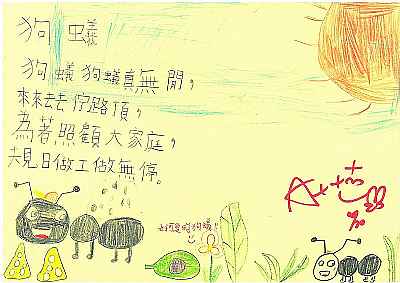 狗蟻
狗蟻狗蟻真無閒，
來來去去佇路頂，
為著照顧大家庭，
規日做工做無停。
好可愛的狗蟻！
A+++